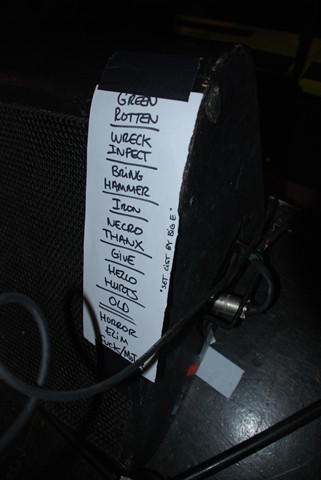 GREEN
ROTTEN
WRECK
INFECT
BRING
HAMMER
IRON
NECRO
THANX
GIVE
HELLO
HURTS
OLD
HORROR
ELIM
FUCK/MOT
"SET LIST BY BIG E"